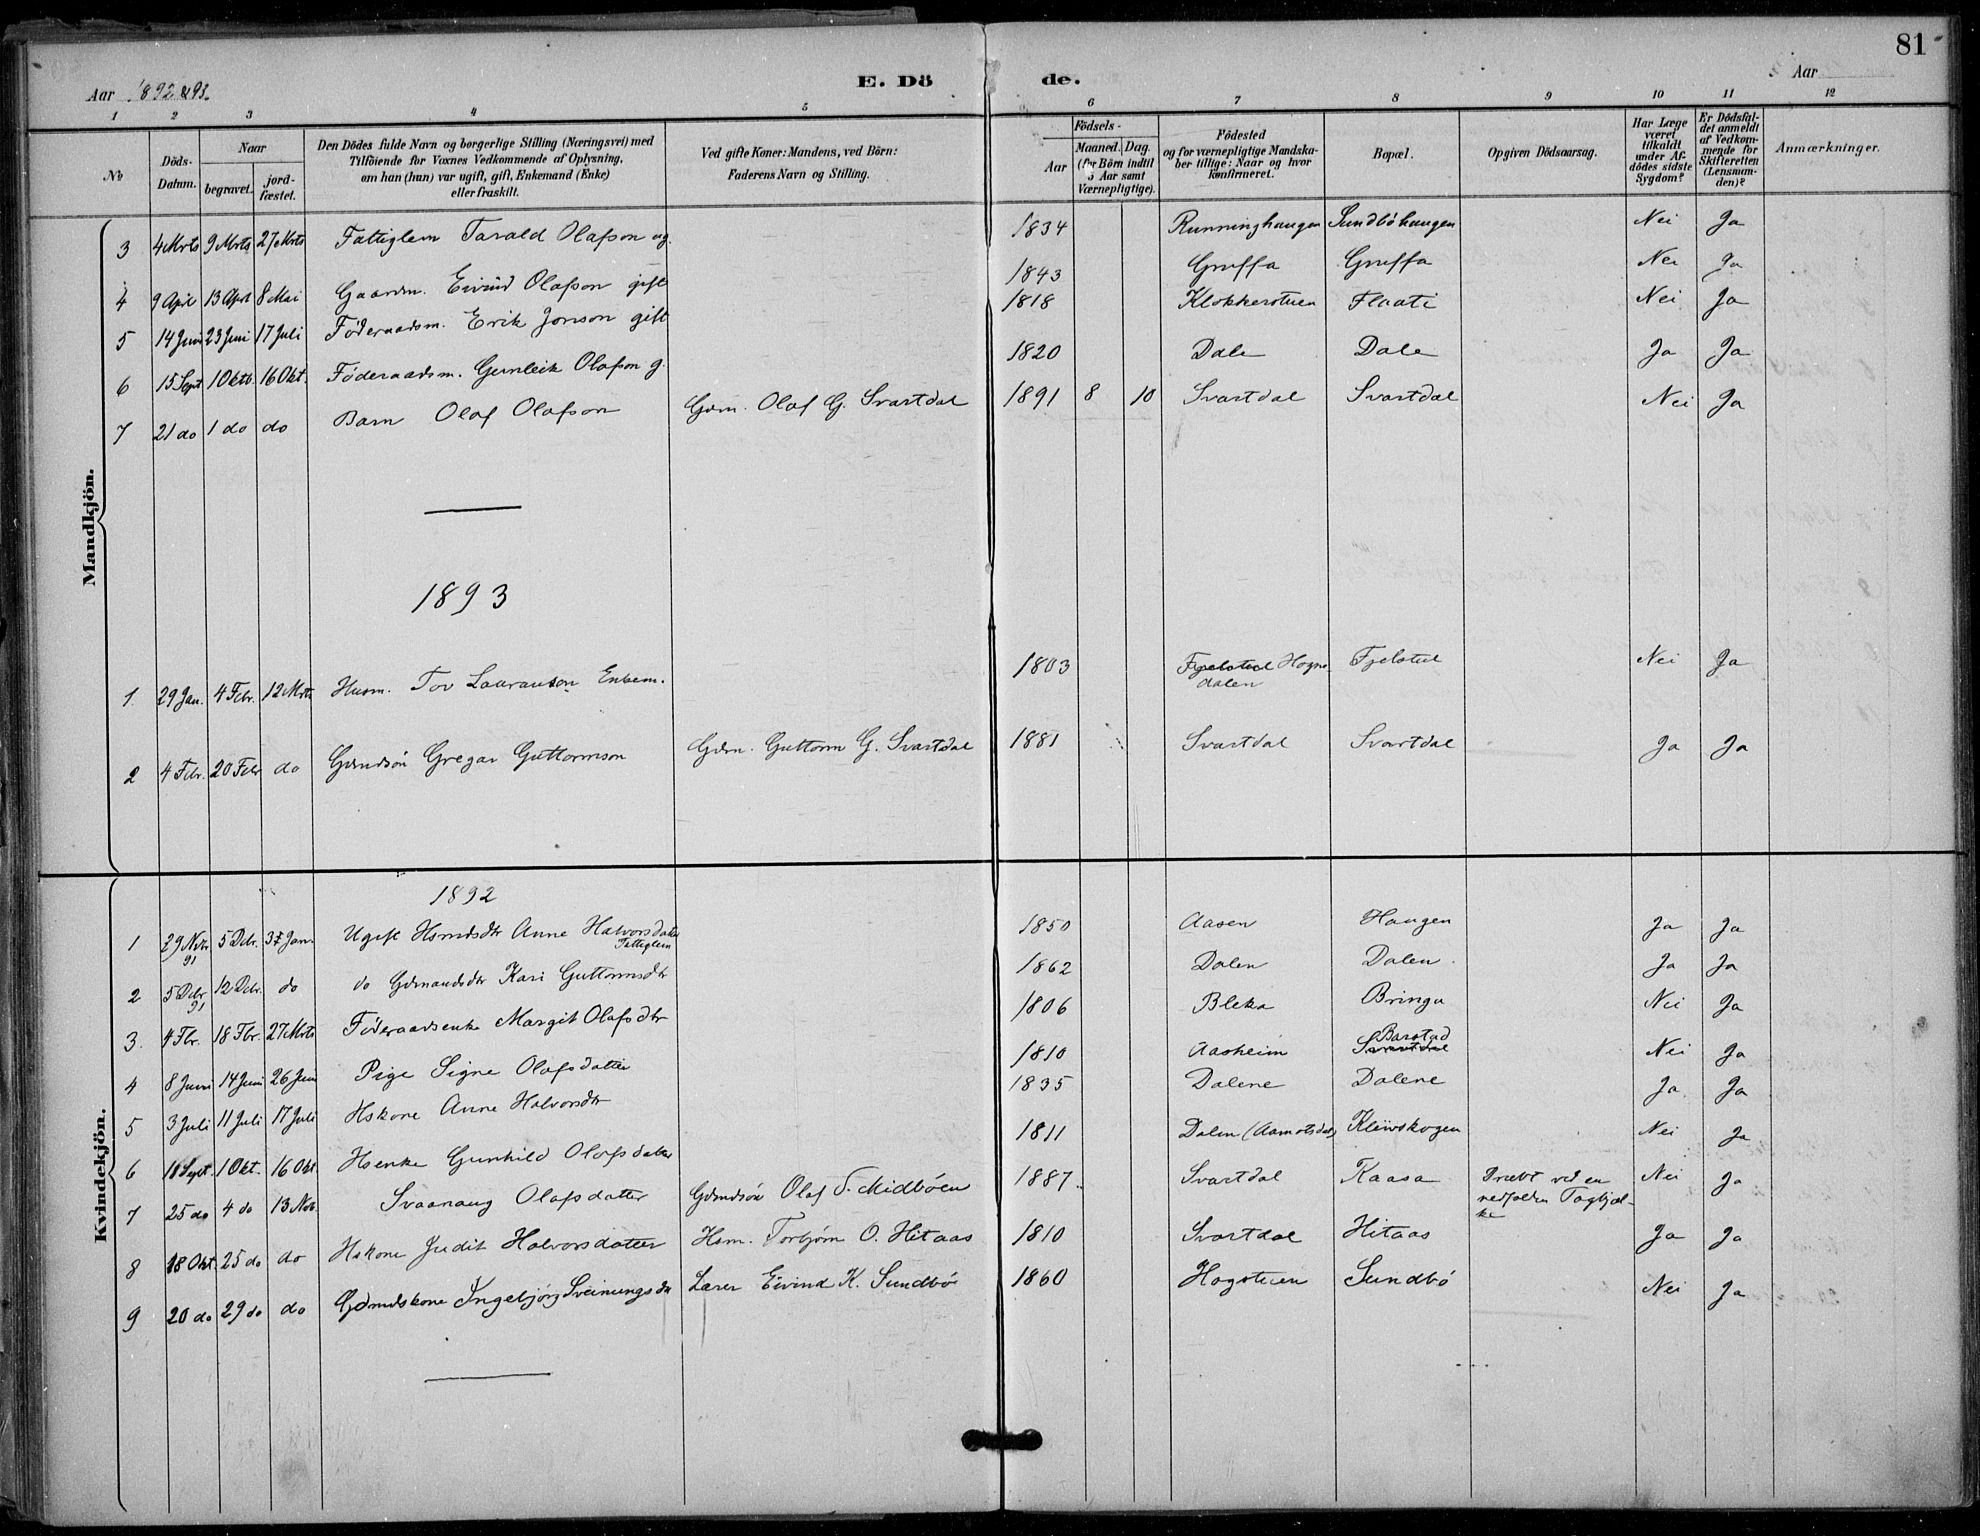 81
Aar 1892 & 93.
E. Döde.
Aar
1 2 3 4 5 6 7 8 9 10 11 12
No
Döds-Datum.
Naar
begravet.
jord-fæstet.
Den Dödes fulde Navn og borgerlige Stilling (Næringsvei) med
Tilföiende for Voxnes Vedkommende af Oplysning,
om han (hun) var ugift, gift, Enkemand (Enke)
eller fraskilt.
Ved gifte Koner: Mandens, ved Börn:
Faderens Navn og Stilling.
Födsels-
Aar
Maaned. Dag.
(for Börn indtil
5 Aar samt
Værnepligtige).
Födested
og for værnepligtige Mandska-
ber tillige: Naar og hvor
konfirmeret.
Bopæl.
Opgiven Dödsaarsag.
Har Læge
været
tilkaldt
under Af-
dödes sidste
Sygdom?
Er Dödsfal-
det anmeldt
af Vedkom-
mende for
Skifteretten
(Lensman-
den)?
Anmærkninger.
Mandkjön.
3 4 Mrts 9 Mrts 27 Mrts Fattiglem Tarald Olafson ug. 1834 Runninghaugen Sundböhaugen Nei Ja
4 9 April 13 April 8 Mai Gaardm. Eivind Olafson gift 1843 Gruffa Gruffa Nei Ja
5 14 Juni 23 Juni 17 Juli Föderaadsm. Erik Jonson gift 1818 Klokkerstuen Flaati Nei Ja
6 15 Sept 1 Oktb. 16 Okt. Föderaadsm. Gunleik Olafson g. 1820 Dale Dale Ja Ja
7 21 do 1 do do Barn Olaf Olafson Gdm. Olaf G. Svartdal 1891 8 10 Svartdal Svartdal Nei Ja
1893
1 29 Jan. 4 Febr. 12 Mrts Husm. Tov Lauranson Enkem. 1803 Fjelstul Hogne
dalen Fjelstul Nei Ja
2 4 Febr. 20 Febr do Gdmdsön Gregar Guttormson Gdm. Guttorm G. Svartdal 1881 Svartdal Svartdal Ja Ja
Kvindekjön.
1892
1 29 Nvbr. 91 5 Dcbr. Jan. Ugift Hsmdsdtr Anne Halvorsdatter
Fattiglem 1850 Aasen Haugen Ja Ja
2 5 Dcbr 91 12 Dcbr. do do Gdmandsdtr Kari Guttormsdtr 1862 Dalen Dalen Ja Ja
3. 4 Fbr. 18 Fbr. 27 Mrts Föderaadsenke Margit Olafsdtr 1806 Bleka Bringa Nei Ja
4 8 Juni 14 Juni 26 Juni Pige Signe Olafsdatter 1810 Aasheim Svartdal Barstad Nei Ja
5 3 Juli 11 Juli 17 Juli Hskone Anne Halvorsdtr 1835 Dalene Dalene Ja Ja
6 18 Sept. 1 Okt. 16 Okt Hsenke Gunhild Olofsdatter 1811 Dalen (Aamotsdal) Kleivskogen Nei Ja
7 25 do 4 do 13 Nov. Svaanaug Olafsdatter Gdmdsön Olaf T. Midböen 1887. Svartdal Kaasa Dræbt ved en
nedfalden Tagbjæl-
ke Nei Ja
8 18 Okt. 25 do do Hskone Judit Halvorsdatter Hsm. Torbjörn O. Hitaas 1810 Svartdal Hitaas Ja Ja
9 20 do 29 do do Gdmdskone Ingebjörg Sveinungsdtr Lærer Eivind K. Sundbö 1860 Hogstuen Sundbö Nei Ja